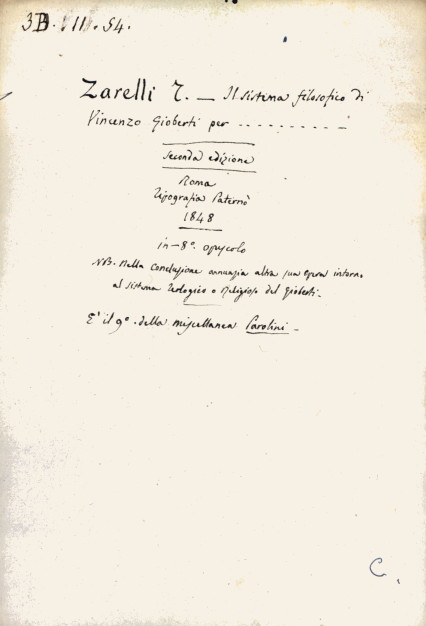 3B. VII. 54.
Zarelli T. — Il sistema filosofico di
Vincenzo Gioberti per ..........
Seconda edizione
Roma
Tipografia Paternò
1848
in-8º. opuscolo
NB. Nella Conclusione annunzia altra sua opera intorno
al sistema teologico o religioso del Gioberti.
E' il 9º. della miscellanea Parolini -
C.